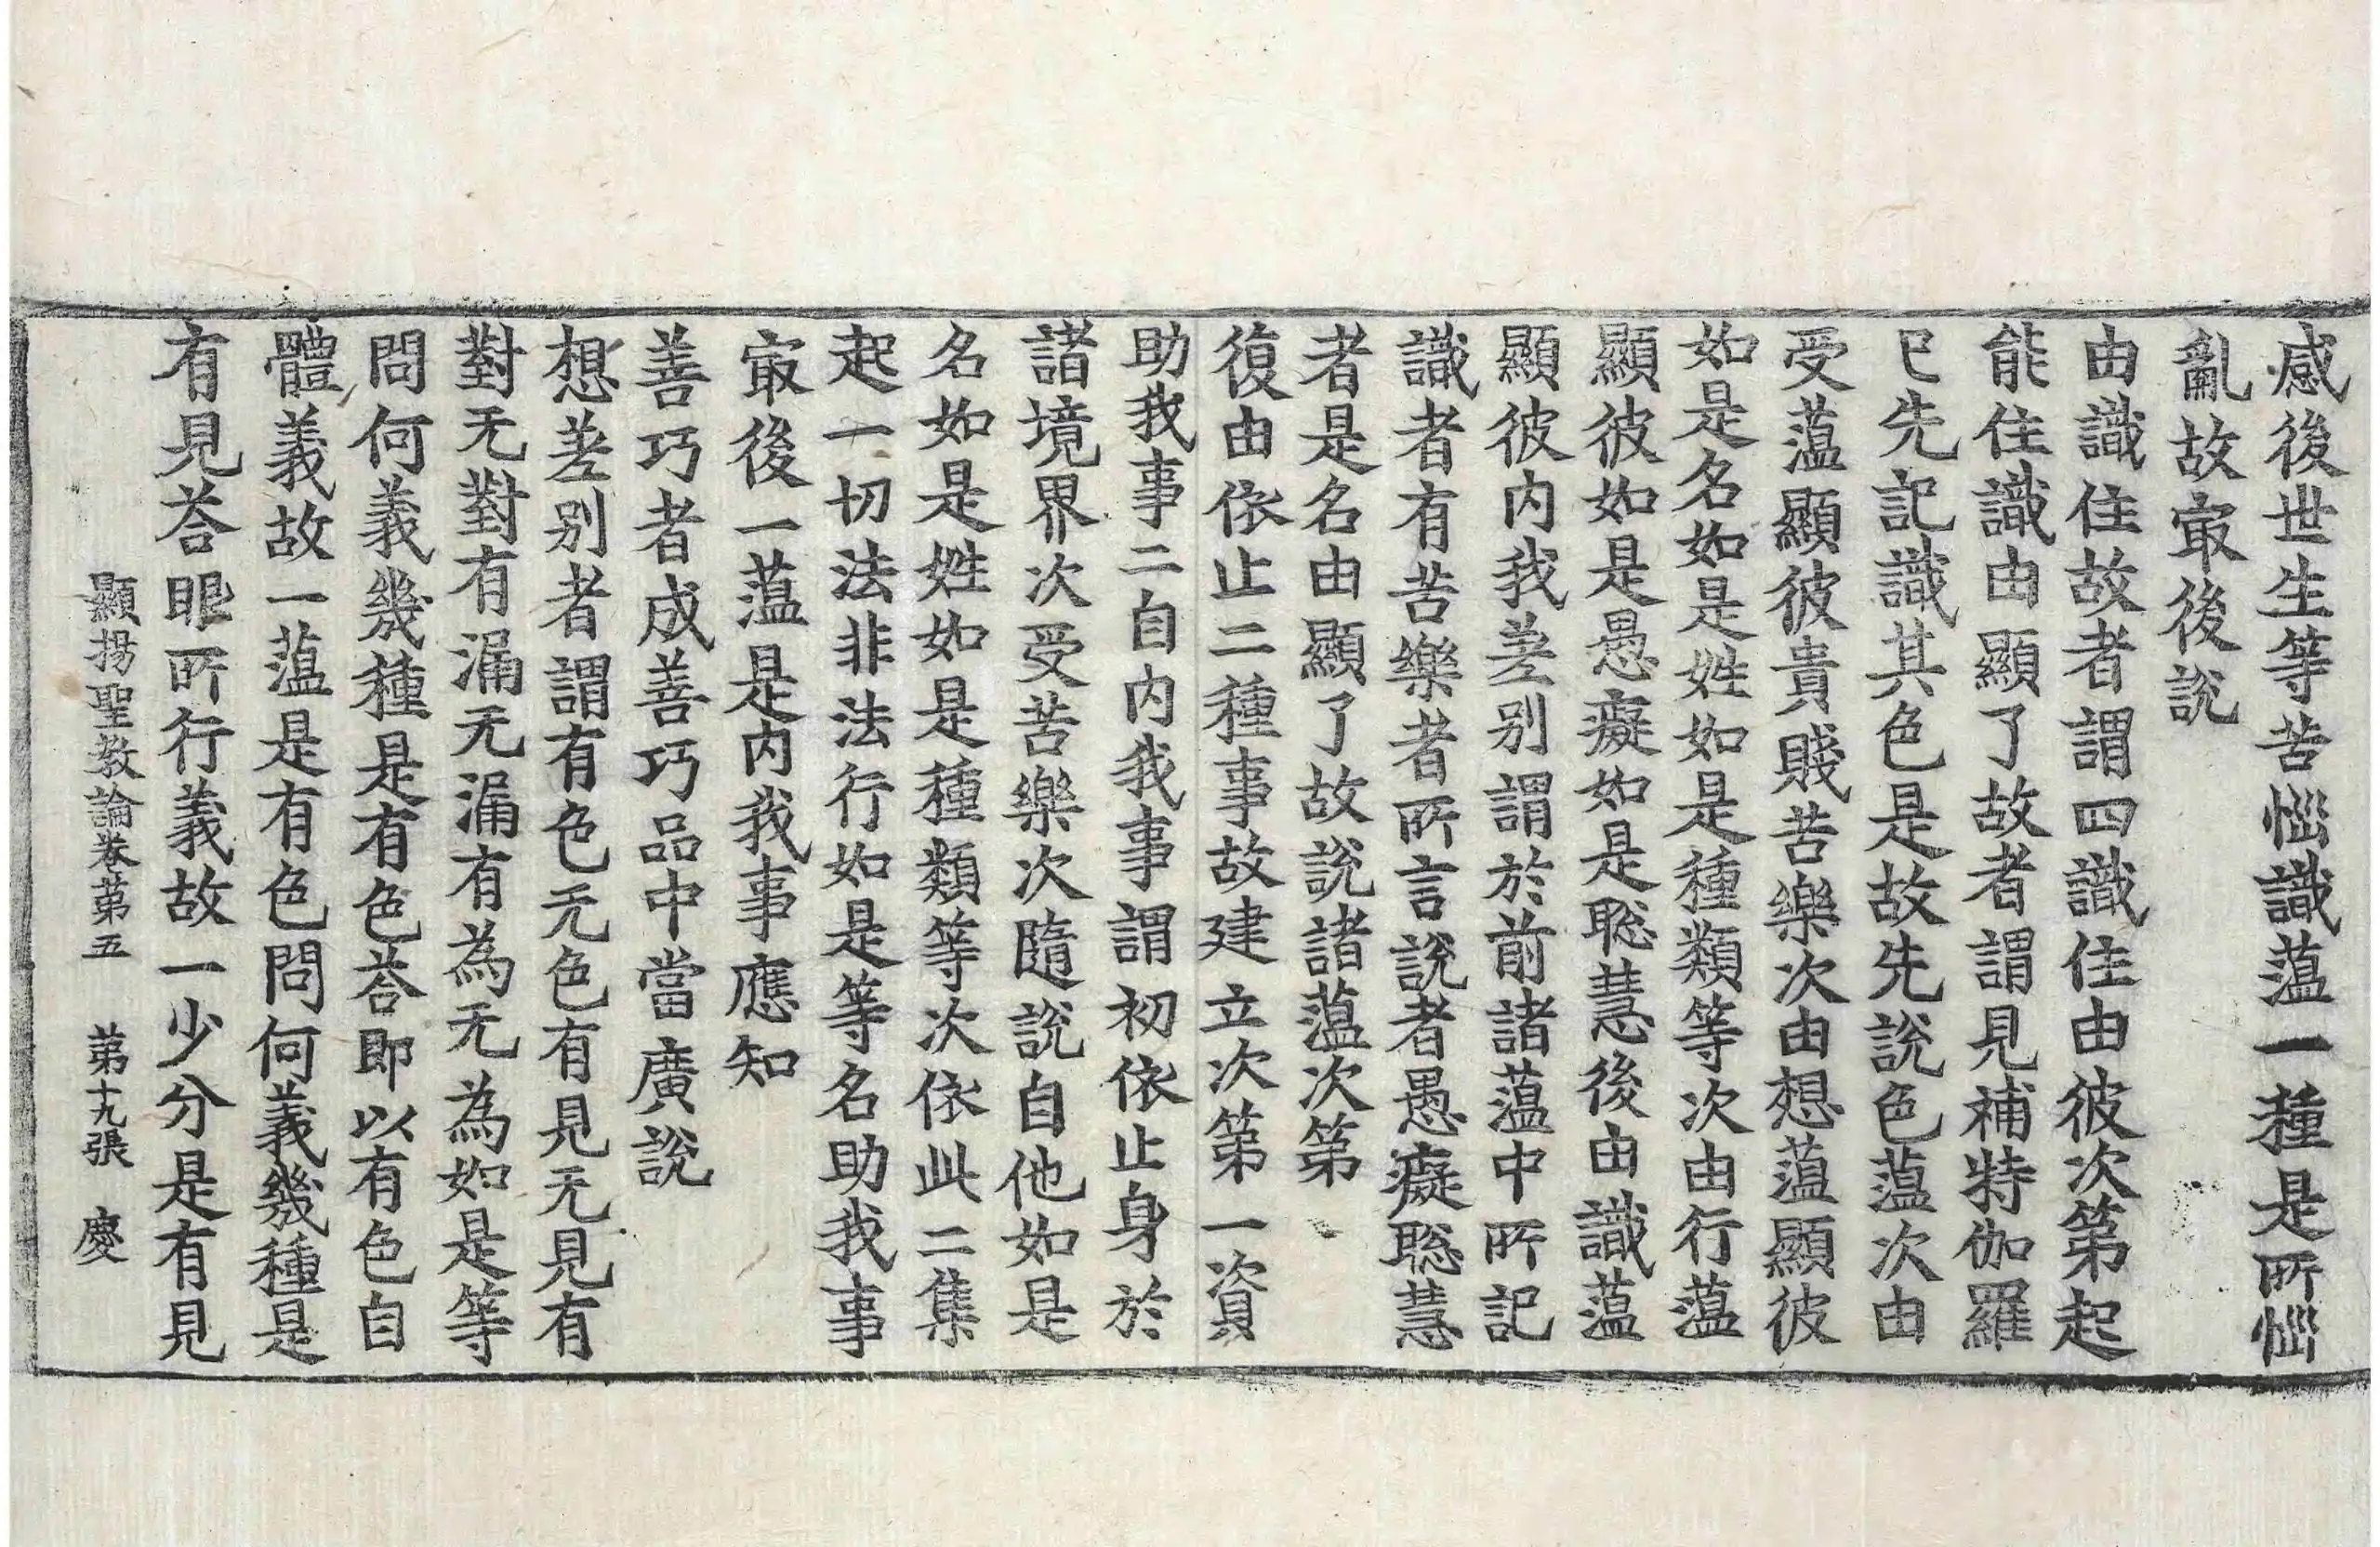 感後世生等苦惱識蘊一種是所惱
亂故㝡後說
由識住故者謂四識住由彼次第起
能住識由顯了故者謂見補特伽羅
已先記識其色是故先說色蘊次由
受蘊顯彼貴賤苦樂次由想蘊顯彼
如是名如是姓如是種類等次由行蘊
顯彼如是愚癡如是聡慧後由識蘊
顯彼內我差別謂於前諸蘊中所記
識者有苦樂者所言說者愚癡聡慧
者是名由顯了故說諸蘊次第
復由依止二種事故建立次第一資
助我事二自內我事謂初依止身於
諸境界次受苦樂次隨說自他如是
名如是姓如是種類等次依此二集
起一切法非法行如是等名助我事
㝡後一蘊是內我事應知
善巧者成善巧品中當廣說
想差別者謂有色无色有見无見有
對无對有漏无漏有為无為如是等
問何義幾種是有色荅即以有色自
體義故一蘊是有色問何義幾種是
有見荅眼所行義故一少分是有見
顯揚聖教論卷第五 第十九張 慶